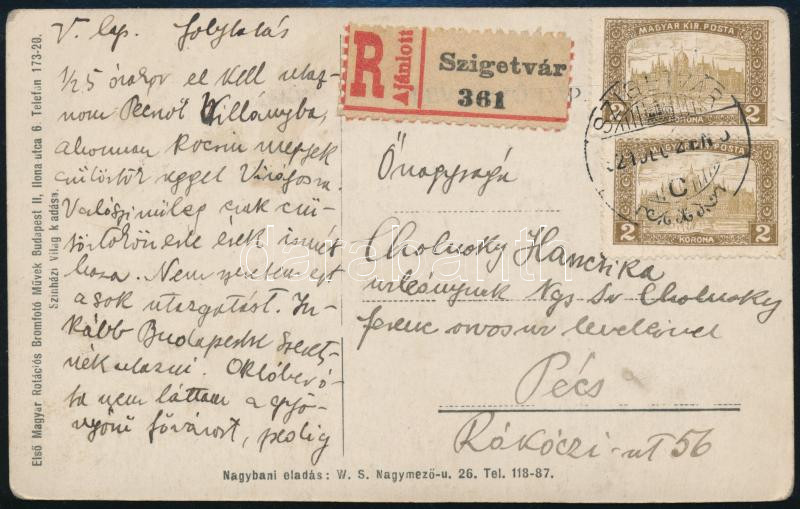 V. lap. folytatás
1/2 5 órakor el kell utaz-
nom Pécsről Villányba,
ahonnan kocsin megyek
csütörtök reggel
Valószinüleg csak csü-
törtökön este érek ismét
haza. Nem szeretem ezt
a sok utazgatást. In-
kább Budapestre szeret-
nék utazni. Október ó-
ta nem láttam a gyö-
nyörü fővárost, pedig
R
Ajánlott
Szigetvár
361
MAGYAR KIR. POSTA
2 2
KORONA
MAGYAR KIR. POSTA
2 2
KORONA
SZIGETVÁR
C
Őnagysága
Cholnoky Hanczika
urleánynak Ngs Dr Cholnoky
ferenc orvos ur leveleivel
Pécs
Rákóczi-ut 56
Első Magyar Rotációs Bromfotó Művek Budapest II, Ilona utca 6. Telefon 173-20.
Szinházi Világ kiadása.
Nagybani eladás: W. S. Nagymező-u. 26. Tel. 118-87.
darabanth